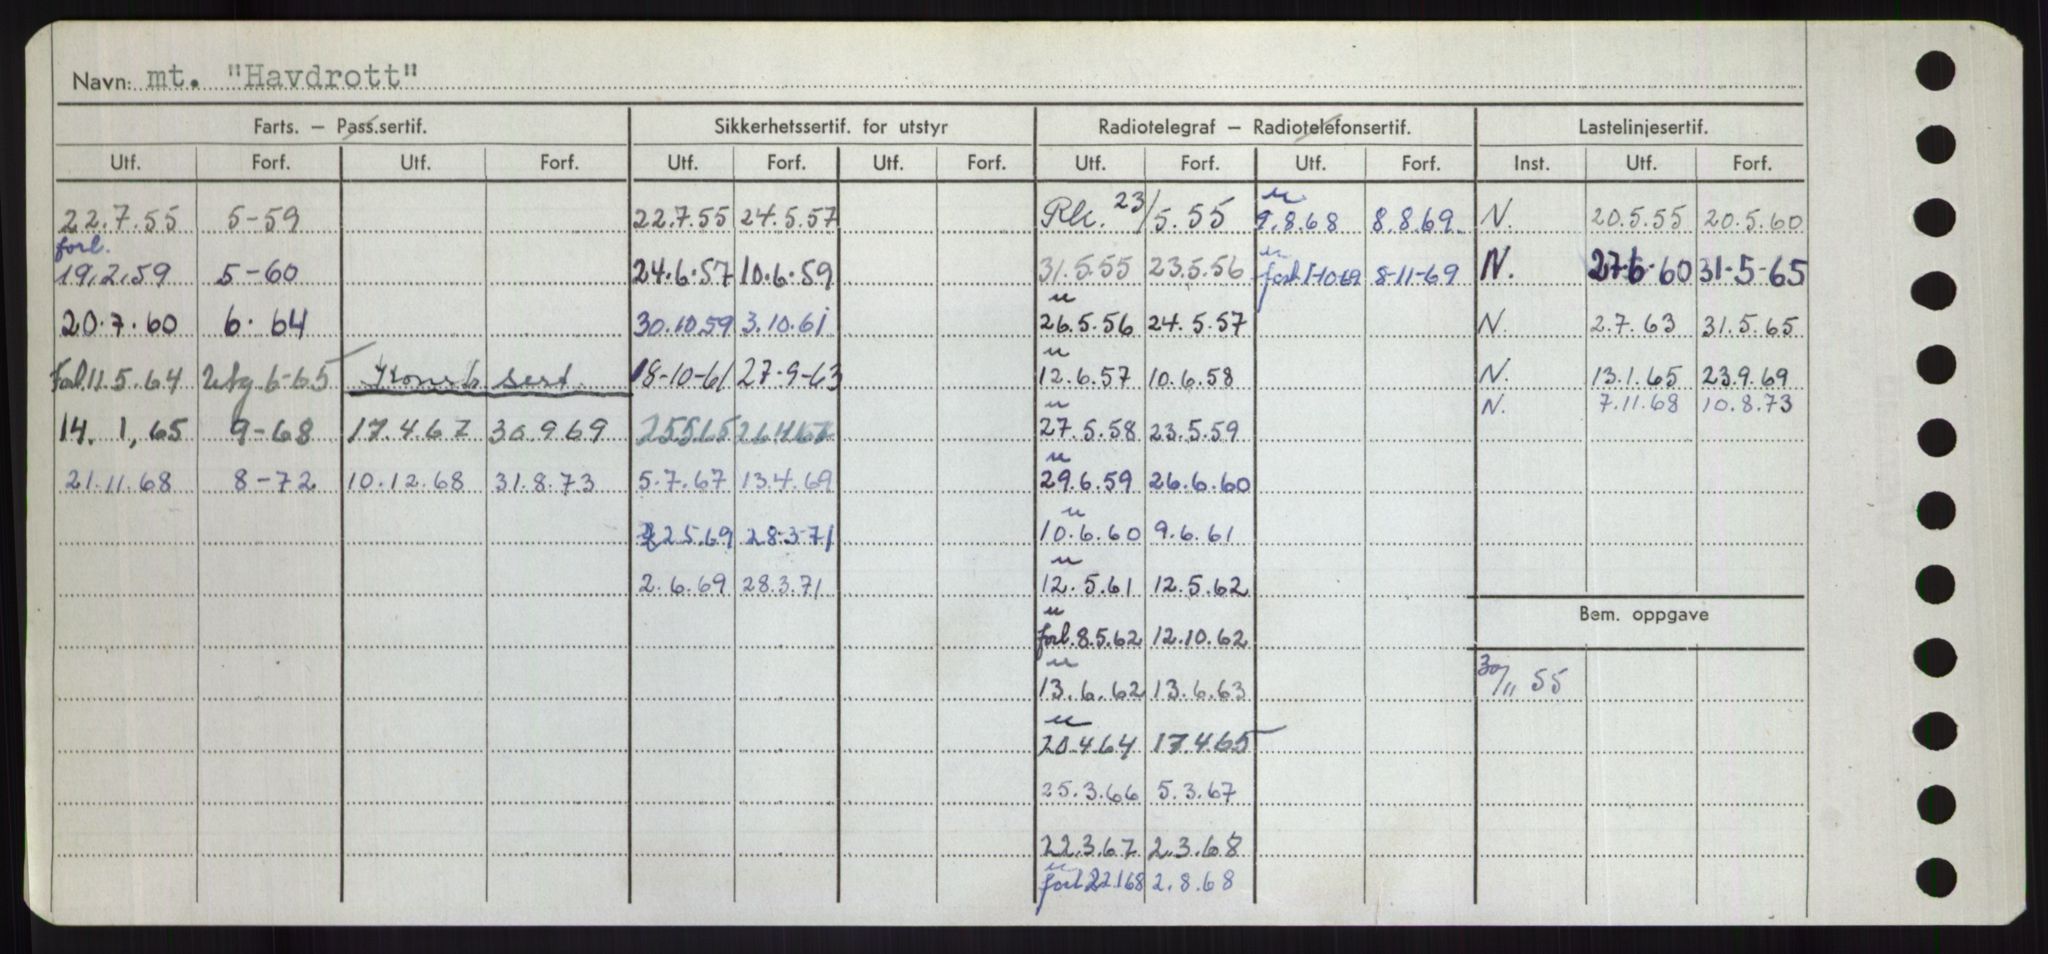 Navn: mt. "Havdrott"
Farts. – Pass.sertif. Sikkerhetssertif. for utstyr Radiotelegraf – Radiotelefonsertif. Lastelinjesertif.
Utf. Forf. Utf. Forf. Utf. Forf. Utf. Forf. Utf. Forf. Utf. Forf. Inst. Utf. Forf.
22.7.55 5-59 22.7.55 24.5.57 23/5.55 u 9.8.68 8.8.69. N. 20.5.55 20.5.60
forl. 19.2.59 5-60 24.6.57 10.6.59 31.5.55 23.5.56 u forl 1-10.69 8-11-69 N. 27.6.60 31-5-65
20.7.60 6.64 30.10.59 3.10.61 u 26.5.56 24.5.57 N. 2.7.63 31.5.65
Forl 11.5.64 utg 6-65 Konstr sert. 18-10-61 27-9-63 u 12.6.57 10.6.58 N. 13.1.65 23.9.69
N. 7.11.68 10.8.73
14. 1, 65 9-68 17.4.67 30.9.69 25565 26467 u 27.5.58 23.5.59
21.11.68 8-72 10.12.68 31.8.73 5.7.67 13.4.69 u 29.6.59 26.6.60
22569 28-3-71 u 10.6.60 9.6.61
2.6.69 28.3.71 u 12.5.61 12.5.62
Bem. oppgave
u forl. 8.5.62 12.10.62
u 13.6.62 13.6.63 30/11 55
u 20.4.64 17.4.65
25.3.66 5.3.67
22.3.67 2.3.68
u forl 22168 2.8.68